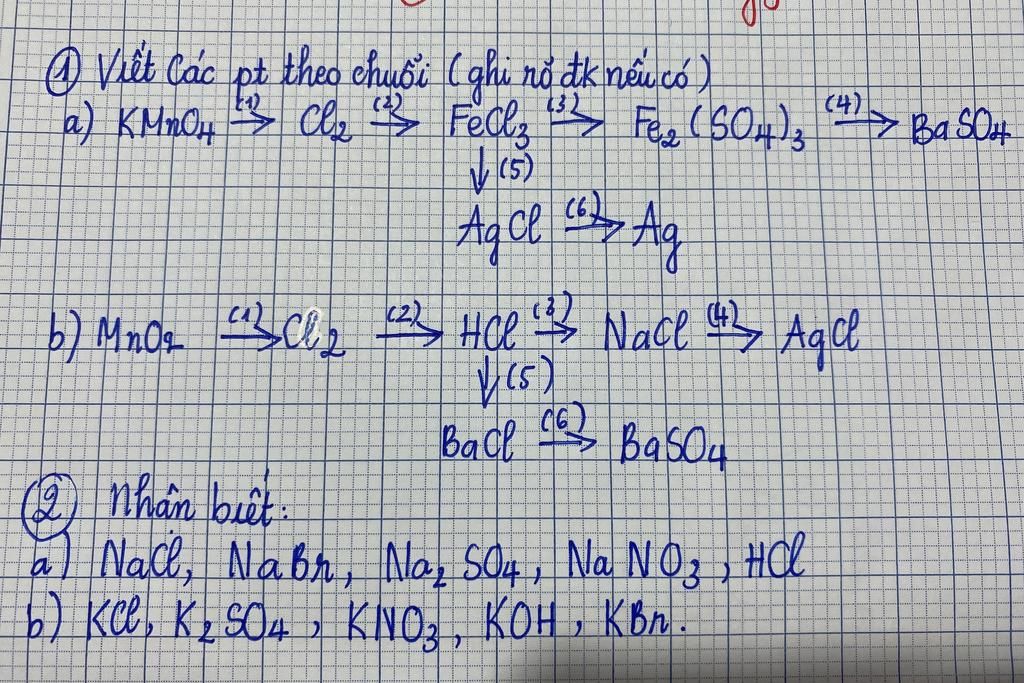 ① Viết các pt theo chuỗi (ghi rõ đk nếu có)
a) KMnO₄ (1)→ Cl₂ (2)→ FeCl₃ (3)→ Fe₂(SO₄)₃ (4)→ BaSO₄
↓(5)
AgCl (6)→ Ag
b) MnO₂ (1)→ Cl₂ (2)→ HCl (3)→ NaCl (4)→ AgCl
↓(5)
BaCl (6)→ BaSO₄
② Nhân biết:
a) NaCl, NaBr, Na₂SO₄, NaNO₃, HCl
b) KCl, K₂SO₄, KNO₃, KOH, KBr.